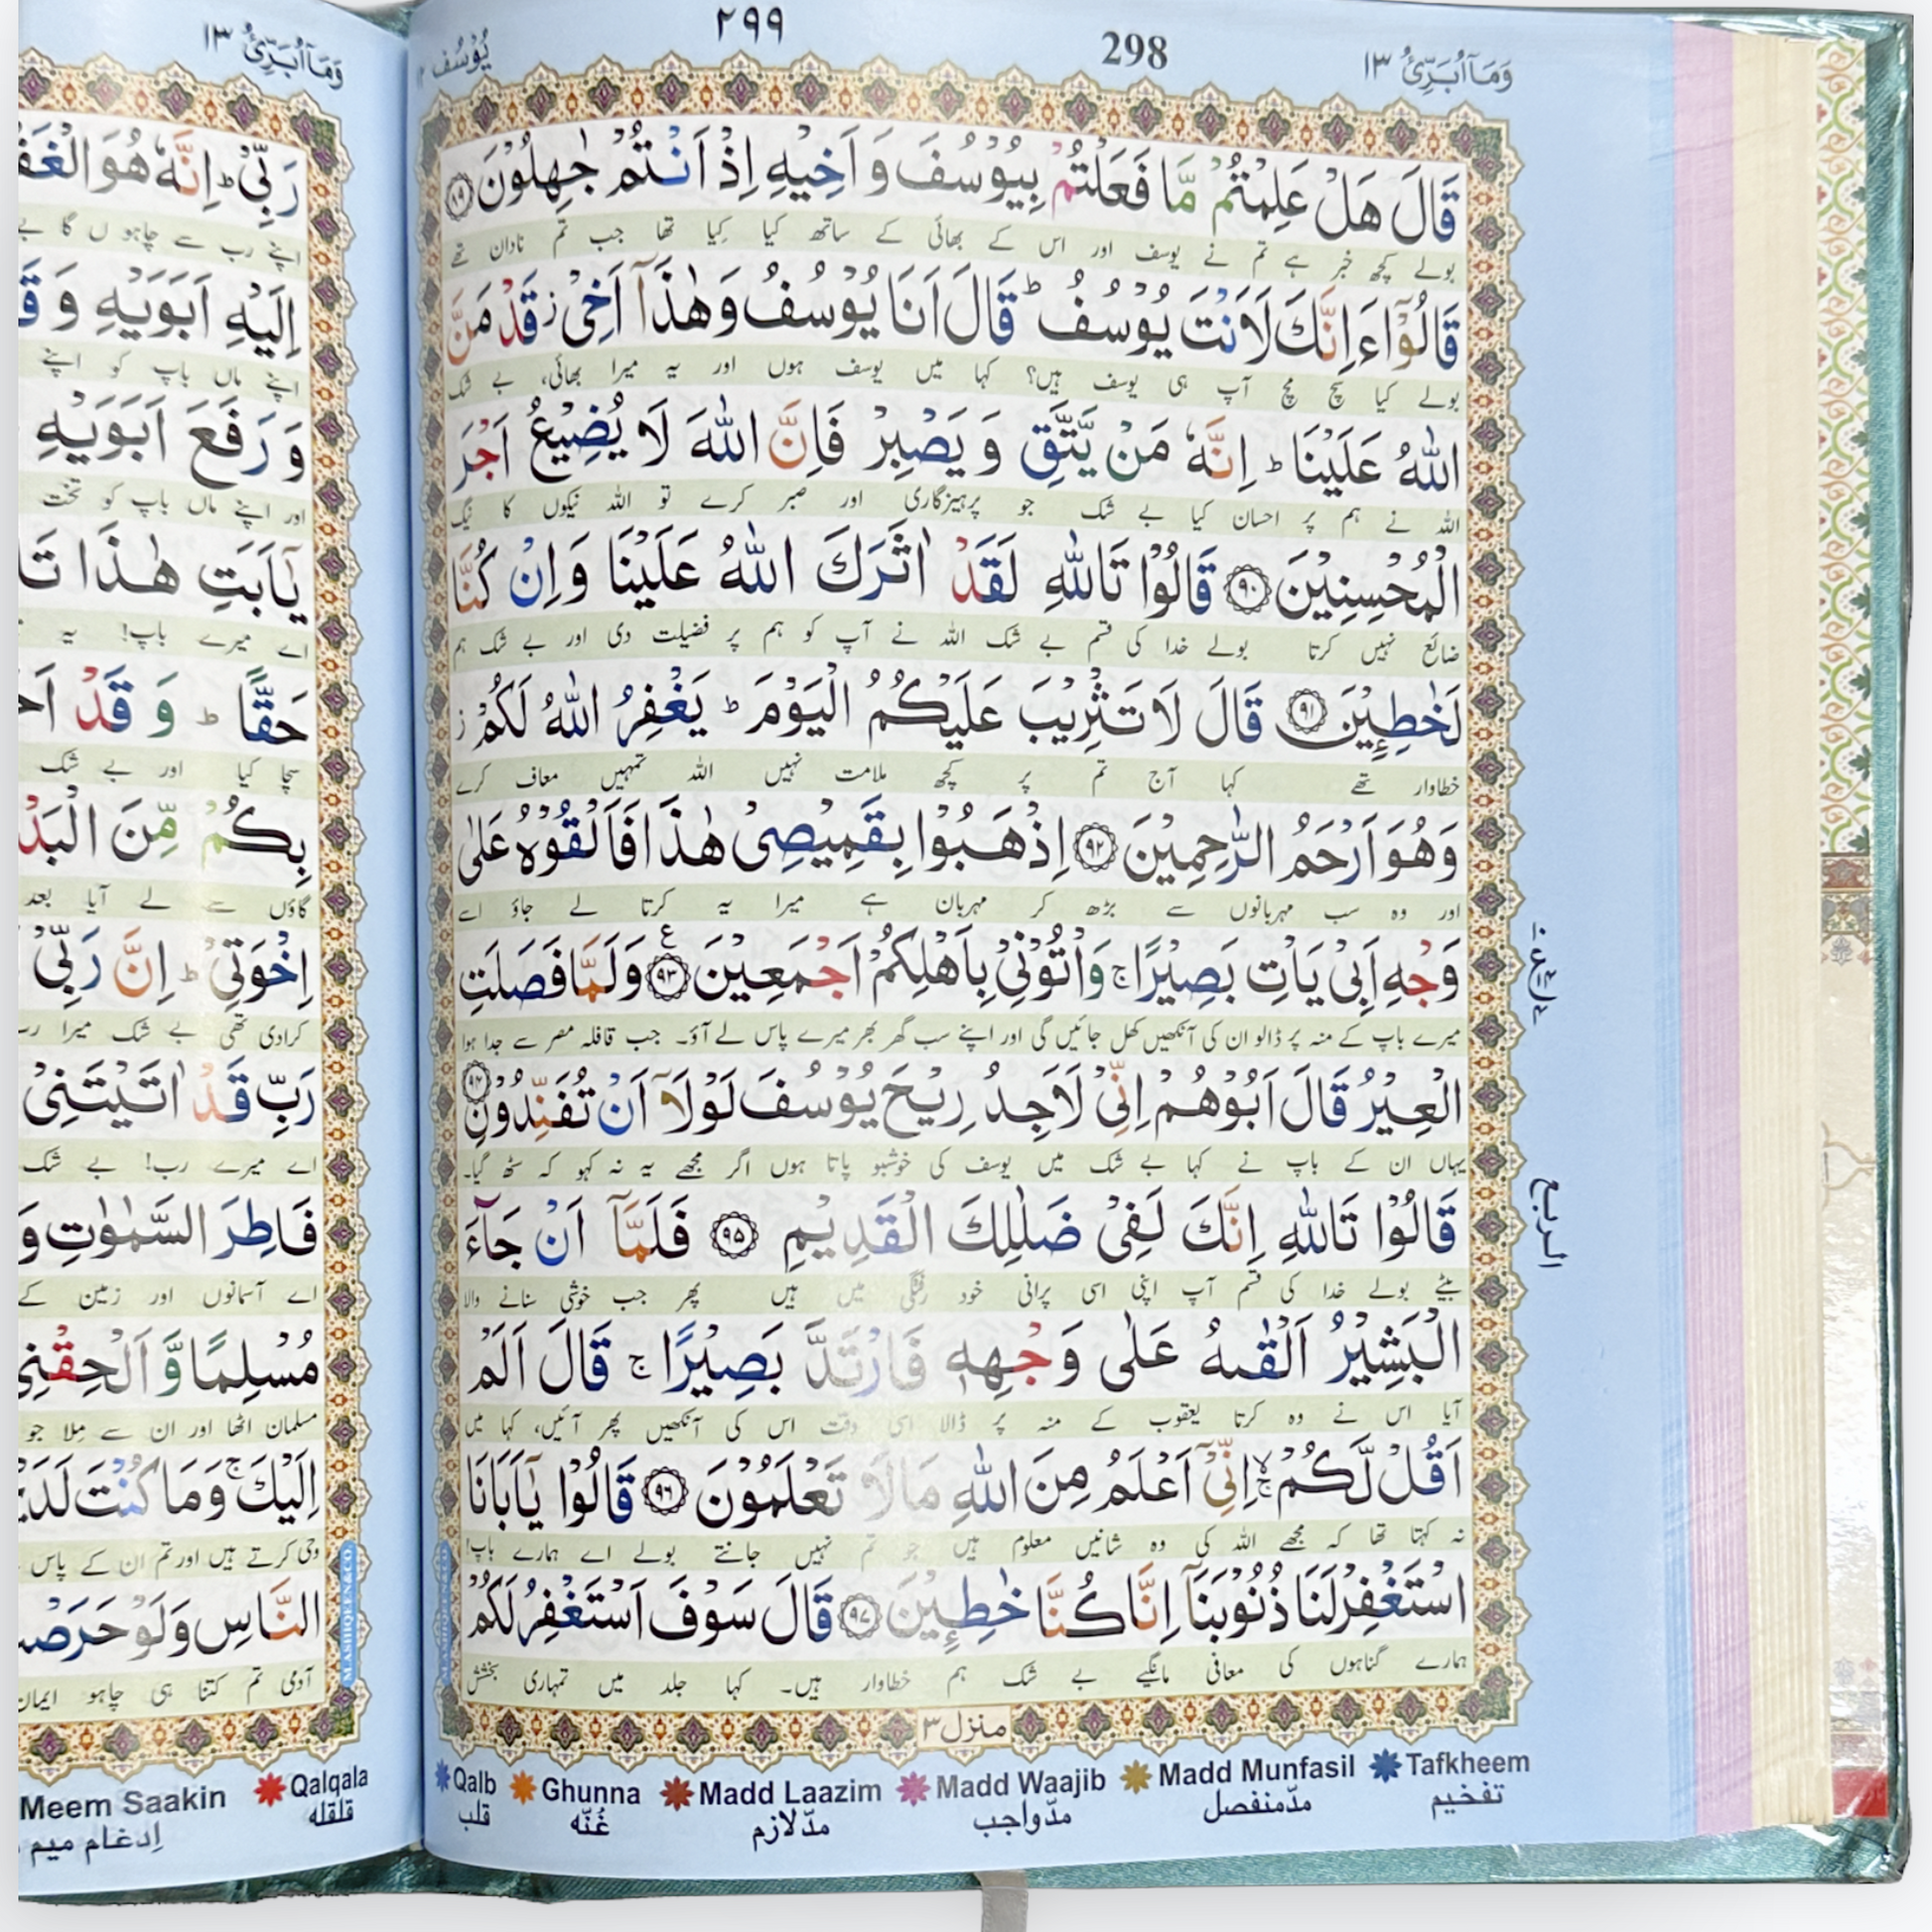 وَمَاۤاُبَرِّئُ ۱۳
298
۲۹۹
يُوْسُف
قَالَ هَلْ عَلِمْتُمْ مَّا فَعَلْتُمْ بِيُوْسُفَ وَ اَخِيْهِ اِذْ اَنْتُمْ جٰهِلُوْنَ ۸۹
بولے کچھ خبر ہے تم نے یوسف اور اس کے بھائی کے ساتھ کیا کِیا تھا جب تم نادان تھے
قَالُوْۤا ءَاِنَّكَ لَاَنْتَ يُوْسُفُ ؕ قَالَ اَنَا يُوْسُفُ وَ هٰذَاۤ اَخِیْ ؗ قَدْ مَنَّ
بولے کیا سچ مچ آپ ہی یوسف ہیں؟ کہا میں یوسف ہوں اور یہ میرا بھائی، بے شک
اللّٰهُ عَلَيْنَا ؕ اِنَّهٗ مَنْ يَّتَّقِ وَ يَصْبِرْ فَاِنَّ اللّٰهَ لَا يُضِيْعُ اَجْرَ
اللہ نے ہم پر احسان کیا بے شک جو پرہیزگاری اور صبر کرے تو اللہ نیکوں کا نیگ
الْمُحْسِنِيْنَ ۹۰ قَالُوْا تَاللّٰهِ لَقَدْ اٰثَرَكَ اللّٰهُ عَلَيْنَا وَ اِنْ كُنَّا
ضائع نہیں کرتا بولے خدا کی قسم بے شک اللہ نے آپ کو ہم پر فضیلت دی اور بے شک ہم
لَخٰطِـِٕيْنَ ۹۱ قَالَ لَا تَثْرِيْبَ عَلَيْكُمُ الْيَوْمَ ؕ يَغْفِرُ اللّٰهُ لَكُمْ ؗ
خطاوار تھے کہا آج تم پر کچھ ملامت نہیں اللہ تمہیں معاف کرے
وَ هُوَ اَرْحَمُ الرّٰحِمِيْنَ ۹۲ اِذْهَبُوْا بِقَمِيْصِیْ هٰذَا فَاَلْقُوْهُ عَلٰى
اور وہ سب مہربانوں سے بڑھ کر مہربان ہے میرا یہ کرتا لے جاؤ اسے
وَجْهِ اَبِیْ يَاْتِ بَصِيْرًا ۚ وَاْتُوْنِیْ بِاَهْلِكُمْ اَجْمَعِيْنَ ۹۳ وَ لَمَّا فَصَلَتِ
میرے باپ کے منہ پر ڈالو ان کی آنکھیں کھل جائیں گی اور اپنے سب گھر بھر میرے پاس لے آؤ۔ جب قافلہ مصر سے جدا ہوا
الْعِيْرُ قَالَ اَبُوْهُمْ اِنِّیْ لَاَجِدُ رِيْحَ يُوْسُفَ لَوْلَاۤ اَنْ تُفَنِّدُوْنِ ۹۴
یہاں ان کے باپ نے کہا بے شک میں یوسف کی خوشبو پاتا ہوں اگر مجھے یہ نہ کہو کہ سٹھ گیا۔
قَالُوْا تَاللّٰهِ اِنَّكَ لَفِیْ ضَلٰلِكَ الْقَدِيْمِ ۹۵ فَلَمَّاۤ اَنْ جَآءَ
بیٹے بولے خدا کی قسم آپ اپنی اسی پرانی خود رفتگی میں ہیں پھر جب خوشی سنانے والا
الْبَشِيْرُ اَلْقٰىهُ عَلٰى وَجْهِهٖ فَارْتَدَّ بَصِيْرًا ۚ قَالَ اَلَمْ
آیا اس نے وہ کرتا یعقوب کے منہ پر ڈالا اسی وقت اس کی آنکھیں پھر آئیں، کہا میں
اَقُلْ لَّكُمْ ۙۚ اِنِّیْۤ اَعْلَمُ مِنَ اللّٰهِ مَا لَا تَعْلَمُوْنَ ۹۶ قَالُوْا يٰۤاَبَانَا
نہ کہتا تھا کہ مجھے اللہ کی وہ شانیں معلوم ہیں جو تم نہیں جانتے بولے اے ہمارے باپ!
اسْتَغْفِرْ لَنَا ذُنُوْبَنَاۤ اِنَّا كُنَّا خٰطِـِٕيْنَ ۹۷ قَالَ سَوْفَ اَسْتَغْفِرُ لَكُمْ
ہمارے گناہوں کی معافی مانگیے بے شک ہم خطاوار ہیں۔ کہا جلد میں تمہاری بخشش
منزل ۳
الربع
Tafkheem Madd Munfasil Madd Waajib Madd Laazim Ghunna Qalb
تفخیم مدّمنفصل مدّواجب مدّلازم غُنّه قلب
وَمَاۤاُبَرِّئُ ۱۳
رَبِّیْ ؕ اِنَّهٗ هُوَ
اپنے رب سے چاہو ں گا
اِلَيْهِ اَبَوَيْهِ وَ
اپنے ماں باپ کو اپنے
وَ رَفَعَ اَبَوَيْهِ
اور اپنے ماں باپ کو تخت
يٰۤاَبَتِ هٰذَا
اے میرے باپ! یہ
حَقًّا ؕ وَ قَدْ
سچا کیا اور بے شک
بِكُمْ مِّنَ
گاؤں سے لے آیا بعد
اِخْوَتِیْ ؕ اِنَّ رَبِّیْ
کرادی تھی بے شک میرا
رَبِّ قَدْ اٰتَيْتَنِیْ
اے میرے رب! بے شک
فَاطِرَ السَّمٰوٰتِ وَ
اے آسمانوں اور زمین کے
مُسْلِمًا وَّ اَلْحِقْنِیْ
مسلمان اٹھا اور ان سے مِلا جو
اِلَيْكَ ۚ وَ مَا كُنْتَ
وحی کرتے ہیں اور تم ان کے پاس
النَّاسِ وَ لَوْ
آدمی تم کتنا ہی چاہو ایمان
Qalqala Meem Saakin
قلقله اِدغام میم